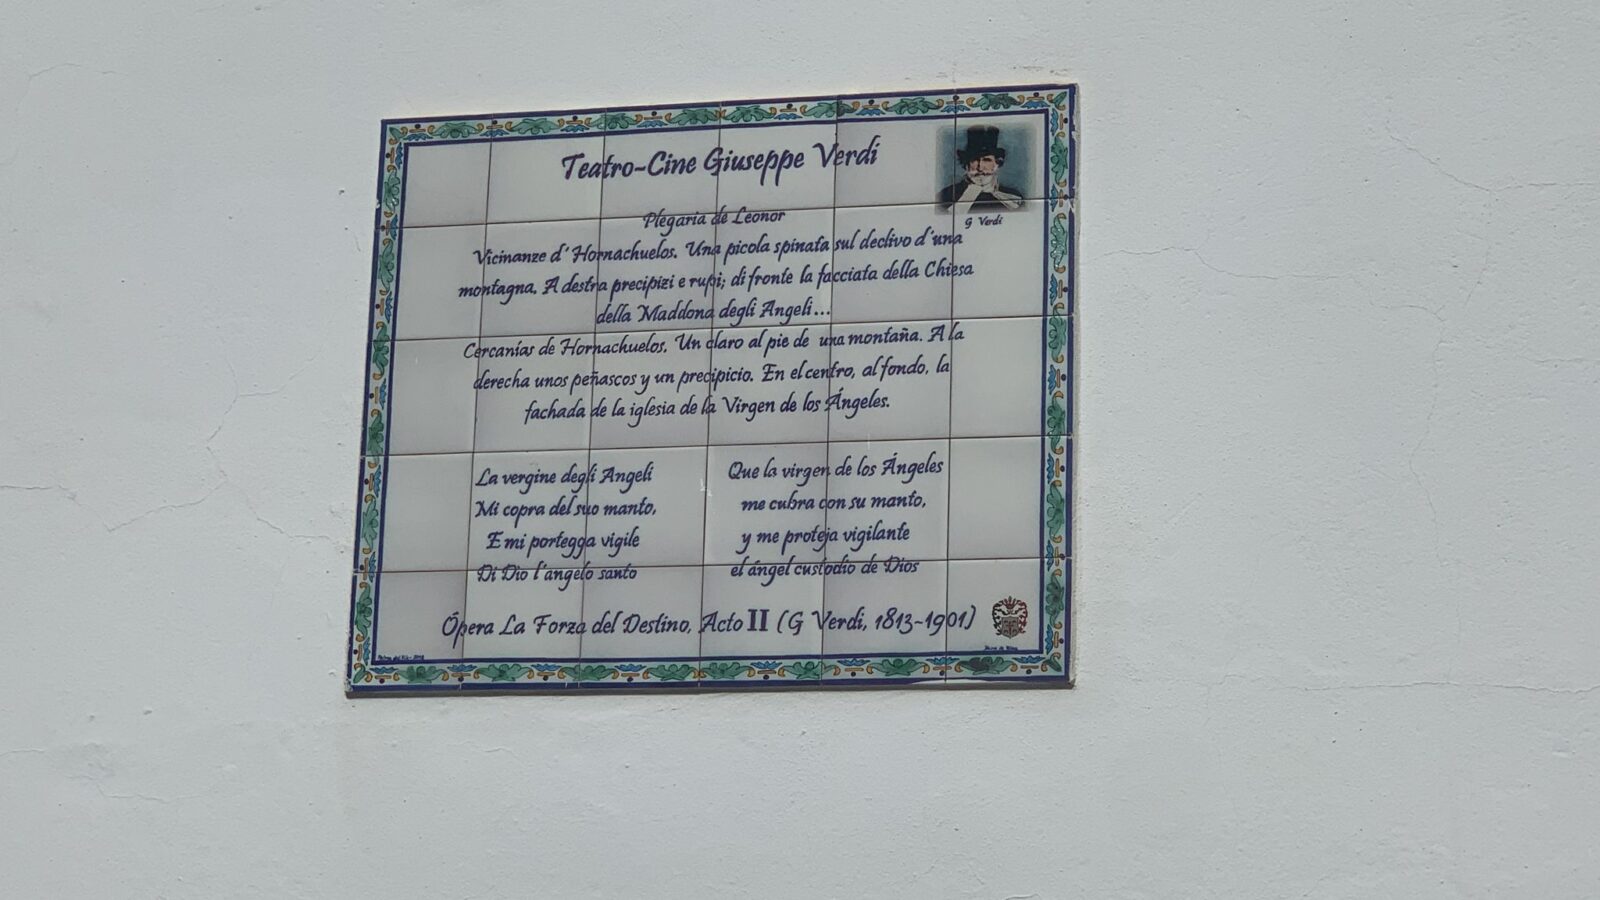 Teatro-Cine Giuseppe Verdi
G Verdi
Plegaria de Leonor
Vicinanze d' Hornachuelos. Una picola spinata sul declivo d'una
montagna. A destra precipizi e rupi; di fronte la facciata della Chiesa
della Maddona degli Angeli...
Cercanías de Hornachuelos. Un claro al pie de una montaña. A la
derecha unos peñascos y un precipicio. En el centro, al fondo, la
fachada de la iglesia de la Virgen de los Ángeles.
La vergine degli Angeli
Mi copra del suo manto,
E mi portegga vigile
Di Dio l'angelo santo
Que la virgen de los Ángeles
me cubra con su manto,
y me proteja vigilante
el ángel custodio de Dios
Ópera La Forza del Destino, Acto II (G Verdi, 1813-1901)